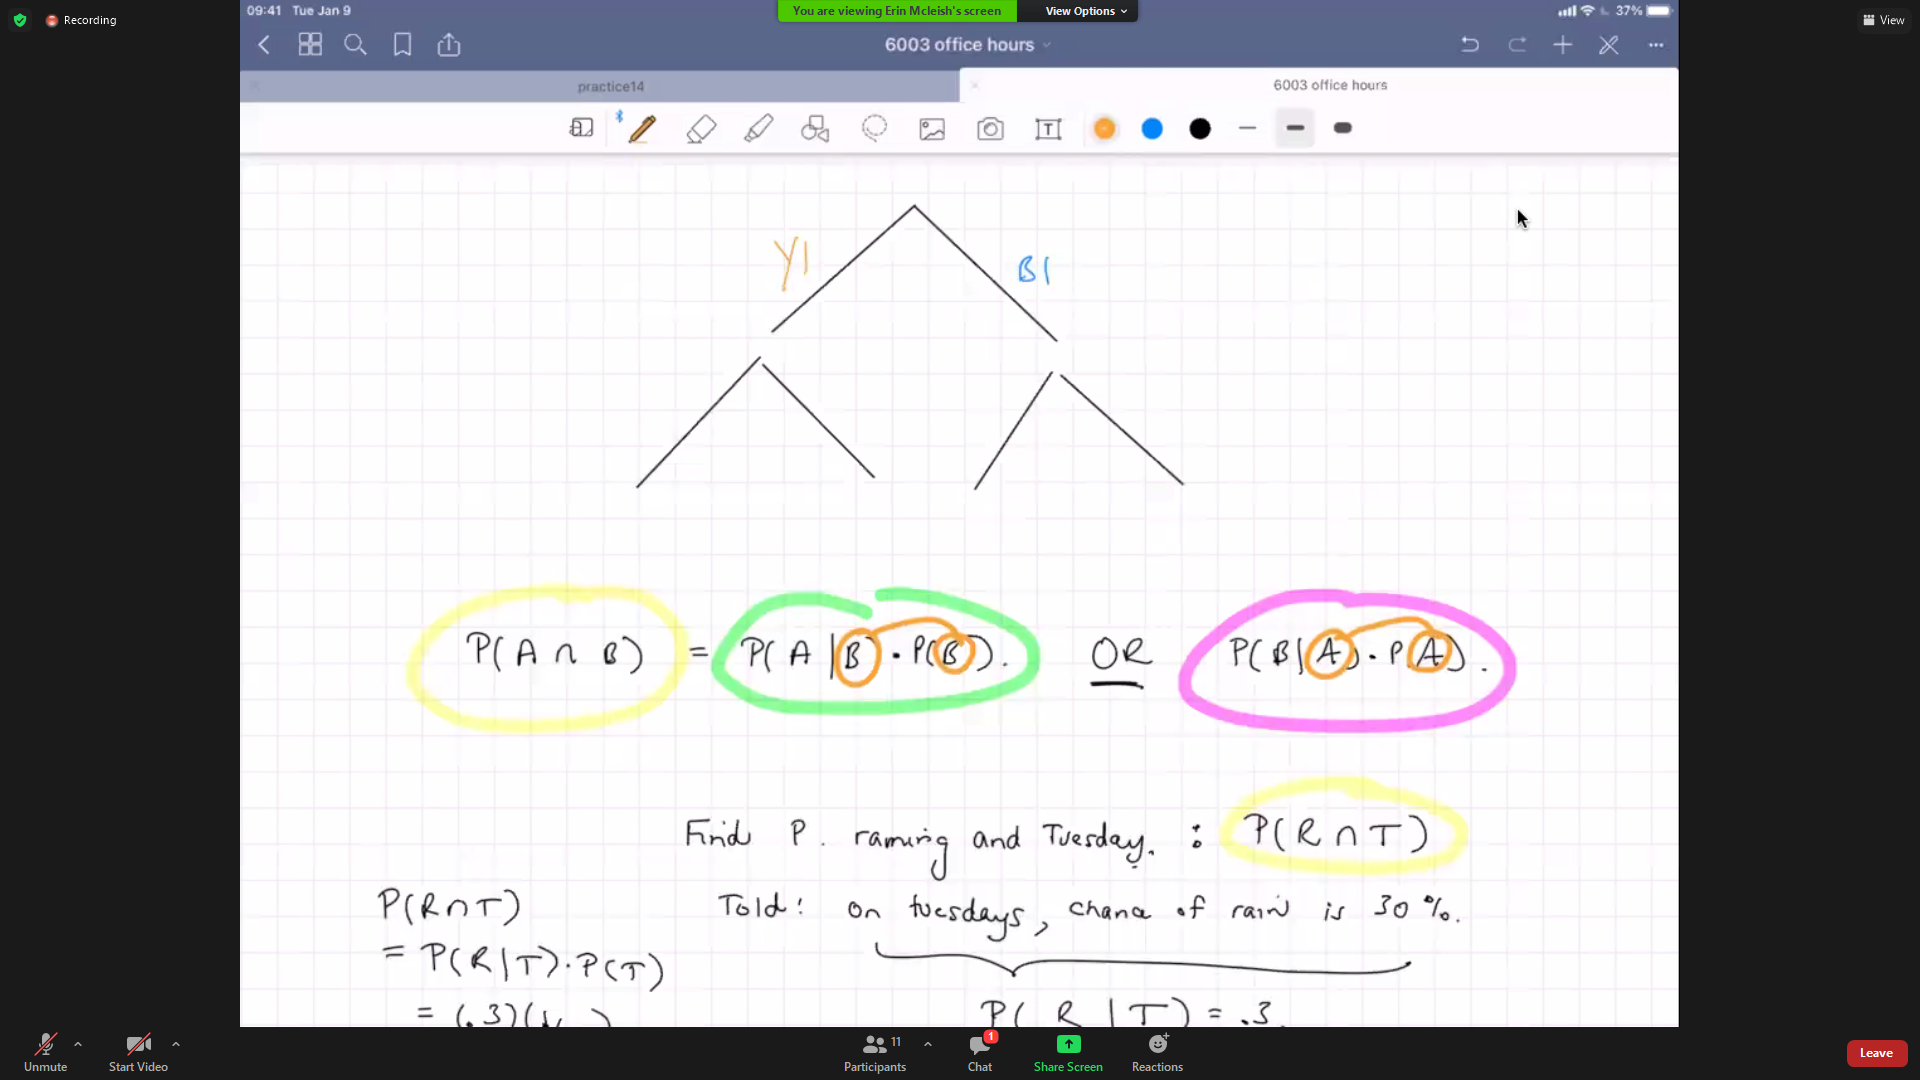 Recording
09:41 Tue Jan 9
You are viewing Erin Mcleish's screen
View Options
37%
View
6003 office hours
practice14
6003 office hours
T
Y1
B1
P(A ∩ B) = P(A|B) · P(B). OR P(B|A) · P(A).
Find P. raining and Tuesday. : P(R ∩ T)
Told: on tuesdays, chance of rain is 30%.
P(R∩T)
= P(R|T)·P(T)
= (.3)(
P(R|T) = .3
Unmute
Start Video
11
Participants
1
Chat
Share Screen
Reactions
Leave